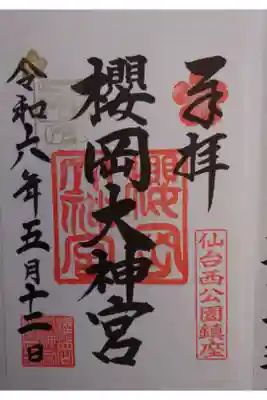 奉拝
仙台西公園鎮座
櫻岡大神宮
令和六年五月十二日